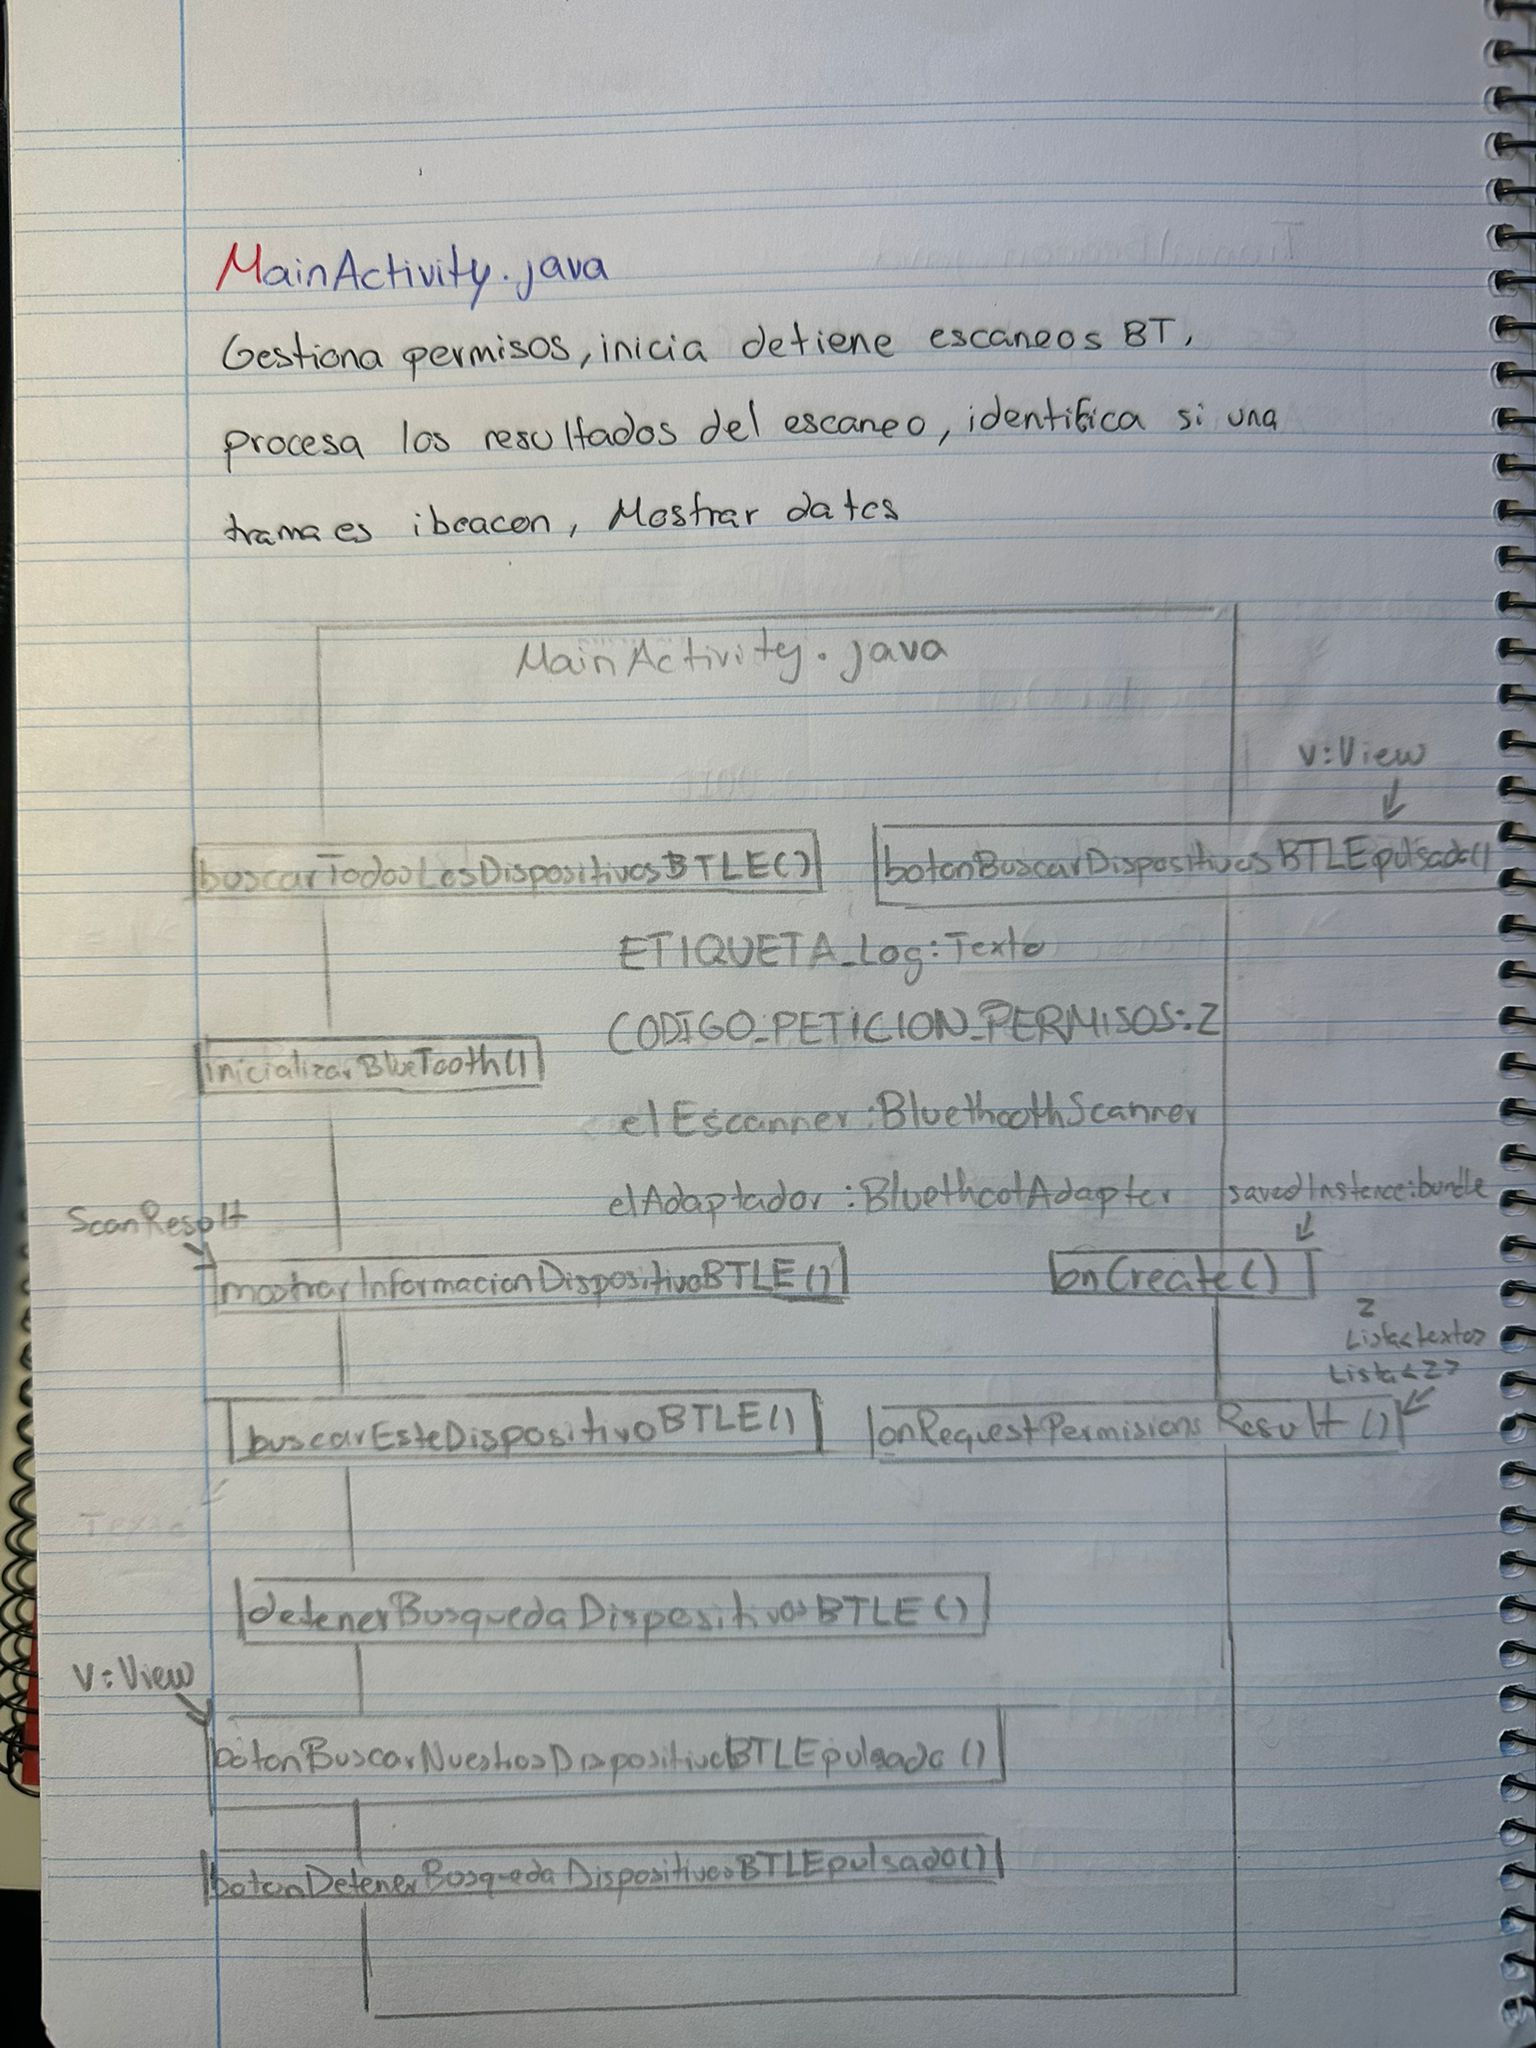 MainActivity.java
Gestiona permisos, inicia detiene escaneos BT,
procesa los resultados del escaneo, identifica si una
trama es ibeacon, Mostrar datos
MainActivity.java
v:View
buscarTodosLosDispositivosBTLE()
botonBuscarDispositivosBTLEpulsado()
ETIQUETA_Log:Texto
CODIGO_PETICION_PERMISOS:Z
inicializarBlueTooth()
elEscanner:BluethoothScanner
elAdaptador:BluethootAdapter
savedInstence:bundle
ScanResult
mostrarInformacionDispositivoBTLE()
onCreate()
Z
Lista<texto>
Lista<Z>
buscarEsteDispositivoBTLE()
onRequestPermisionsResult()
Texto
detenerBusquedaDispositivosBTLE()
v:View
botonBuscarNuestrosDispositivoBTLEpulsado()
botonDetenerBusquedaDispositivosBTLEpulsado()